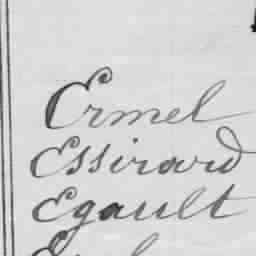 Ermel
Essirard
Egault